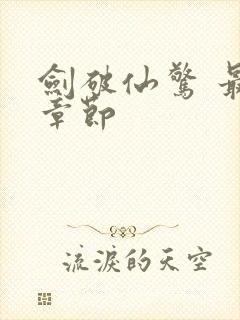 劍破仙驚 最
章節
流淚的天空